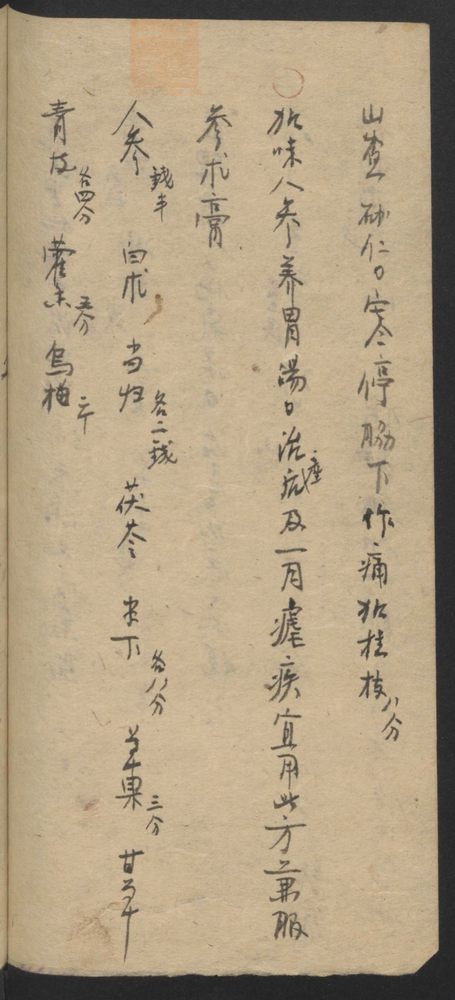 山查砂仁。寒停脇下作痛加桂枝八分
加味人參养胃湯。治虛瘧及一月瘧疾宜用此方兼服
參朮膏
人參錢半 白朮 当归各二錢 茯苓 半下各八分 草果三分 甘草
青皮各四分 藿香五分 烏梅二个